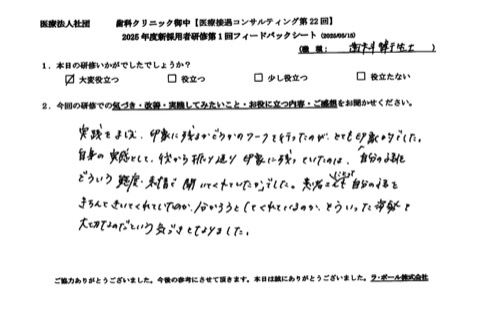 医療法人社団　歯科クリニック御中【医療接遇コンサルティング第22回】
2025年度新採用者研修第1回フィードバックシート（2025/05/15）
（職種：歯科衛生士）
1．本日の研修いかがでしたでしょうか？
☑ 大変役立つ　□ 役立つ　□ 少し役立つ　□ 役立たない
2．今回の研修での気づき・改善・実践してみたいこと・お役に立つ内容・ご感想をお聞かせください。
実践をまじえ、印象に残るかどうかのワークを行ったのが、とても印象的でした。
自身の実感として、後から振り返り印象に残っていたのは、自分の話を
どういう態度・表情で聞いてくれていたかでした。患者さんも自分の話を
きちんときいてくれていたのか、分かろうとしてくれているのか、そういった姿勢が
大切なのだという気づきとなりました。
ご協力ありがとうございました。今後の参考にさせて頂きます。本日は誠にありがとうございました。ラ・ポール株式会社